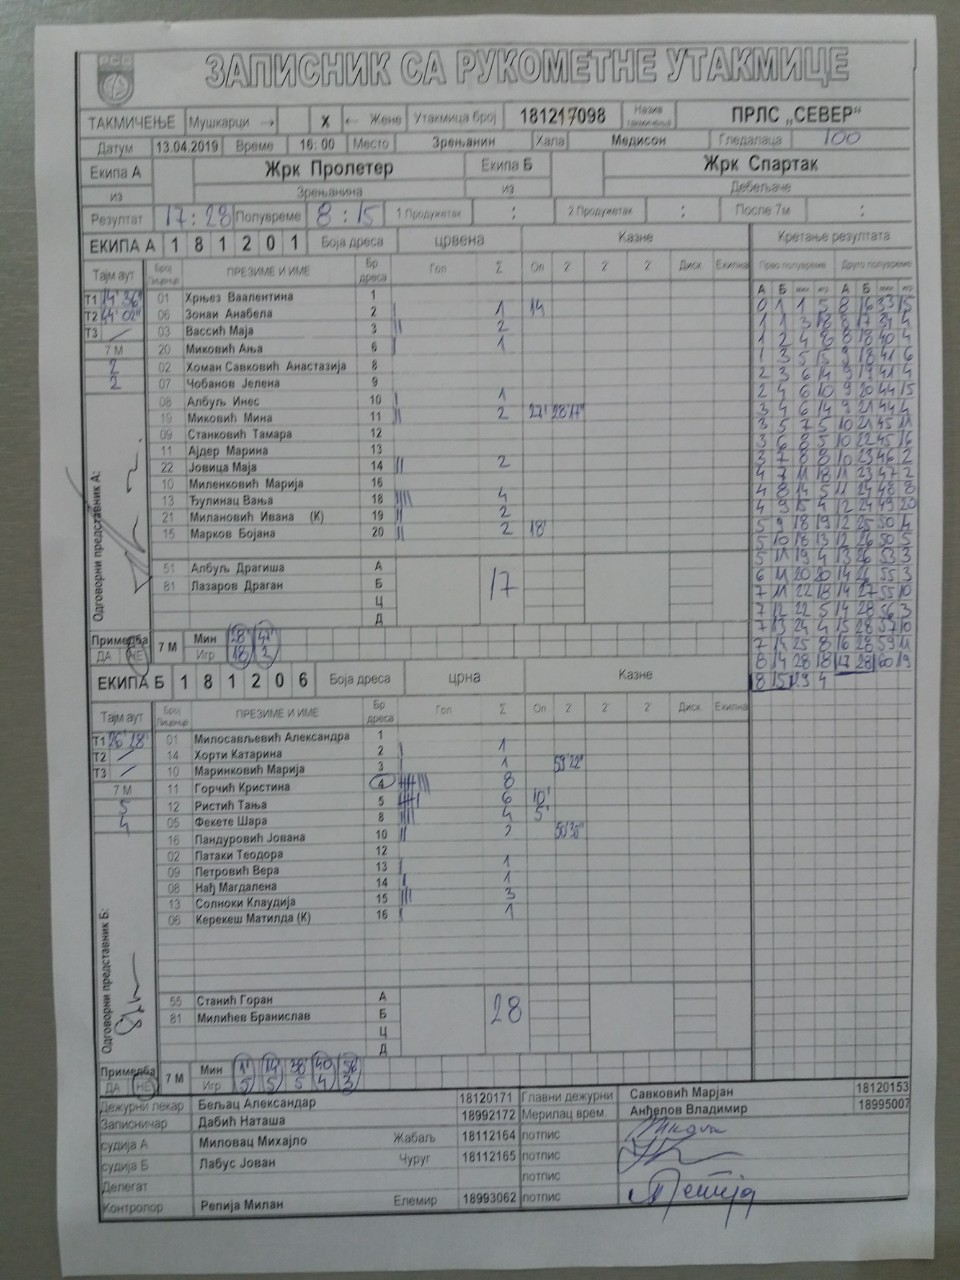 РСС
ЗАПИСНИК СА РУКОМЕТНЕ УТАКМИЦЕ
ТАКМИЧЕЊЕ Мушкарци → X ← Жене Утакмица број 181217098 Назив такмичења ПРЛС „СЕВЕР“
Датум 13.04.2019 Време 16:00 Место Зрењанин Хала Медисон Гледалаца 100
Екипа А Жрк Пролетер Екипа Б Жрк Спартак
из Зрењанина из Дебељаче
Резултат 17:28 Полувреме 8:15 1 Продужетак : 2 Продужетак : После 7м :
ЕКИПА А 1 8 1 2 0 1 Боја дреса црвена Казне Кретање резултата
Тајм аут Број Лиценце ПРЕЗИМЕ И ИМЕ Бр дреса Гол Σ Оп 2 2 2 Диск. Екипна Прво полувреме Друго полувреме
А Б мин игр А Б мин игр
Т1 14' 36" 01 Хрњез Ваалентина 1
Т2 44' 02" 06 Зонаи Анабела 2 | 1 14
Т3 / 03 Вассић Маја 3 || 2
7 М 20 Миковић Ања 6 | 1
2 02 Хоман Савковић Анастазија 8
2 07 Чобанов Јелена 9
08 Албуљ Инес 10 | 1
19 Миковић Мина 11 || 2 27' 28'17"
09 Станковић Тамара 12
11 Ајдер Марина 13
22 Јовица Маја 14 || 2
10 Миленковић Марија 16
13 Ђулинац Вања 18 |||| 4
21 Милановић Ивана (К) 19 || 2
15 Марков Бојана 20 || 2 18'
Одговорни представник А:
51 Албуљ Драгиша А
81 Лазаров Драган Б 17
Ц
Д
Примедба 7 М Мин 28'
ДА НЕ Игр 18 2
0 1 1 5 8 16 33 15
1 2 4 8 8 18 40 4
1 3 5 15 9 18 41 6
2 3 6 14 9 19 41 4
2 4 6 10 9 20 44 15
3 4 6 14 9 21 44 4
3 5 7 5 10 21 45 11
3 6 8 5 10 22 45 16
3 7 8 8 10 23 46 2
4 7 11 18 11 23 47 2
4 8 14 5 11 24 48 8
4 9 15 4 12 24 49 20
5 9 18 19 12 25 50 4
5 10 18 13 12 26 50 5
5 11 19 4 13 26 53 3
6 11 20 20 14 26 55 3
7 11 22 18 14 27 55 10
7 12 22 5 14 28 56 3
7 13 24 4 15 28 57 10
7 14 25 8 16 28 59 11
8 14 28 18 17 28 60 19
8 15 29 4
ЕКИПА Б 1 8 1 2 0 6 Боја дреса црна Казне
Тајм аут Број Лиценце ПРЕЗИМЕ И ИМЕ Бр дреса Гол Σ Оп 2 2 2 Диск. Екипна
Т1 26' 28" 01 Милосављевић Александра 1
Т2 / 14 Хорти Катарина 2 | 1
Т3 / 10 Маринковић Марија 3 | 1 59'22"
7 М 11 Горчић Кристина 4 8
5 12 Ристић Тања 5 6 10'
4 05 Фекете Шара 8 |||| 4 5'
16 Пандуровић Јована 10 || 2
02 Патаки Теодора 12
09 Петровић Вера 13 | 1
08 Нађ Магдалена 14 | 1
13 Солноки Клаудија 15 ||| 3
06 Керекеш Матилда (К) 16 | 1
Одговорни представник Б:
55 Станић Горан А
81 Милићев Бранислав Б 28
Ц
Д
Примедба 7 М Мин 1' 14' 38' 40 56'
ДА НЕ Игр 5 5 5 4 3
Дежурни лекар Бељац Александар 18120171 Главни дежурни Савковић Марјан 18120153
Записничар Дабић Наташа 18992172 Мерилац врем. Анђелов Владимир 18995007
судија А Миловац Михајло Жабаљ 18112164 потпис
судија Б Лабус Јован Чуруг 18112165 потпис
Делегат потпис
Контролор Репија Милан Елемир 18993062 потпис